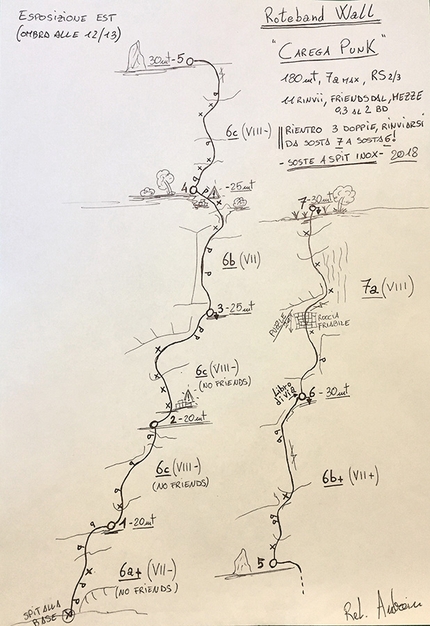 ESPOSIZIONE EST
(OMBRA ALLE 12/13)
Roteband Wall
"CAREGA PUNK"
180mt, 7a MAX, RS2/3
11 RINVII, FRIENDS DAL, MEZZE
0,3 AL 2 BD
RIENTRO 3 DOPPIE, RINVIARSI
DA SOSTA 7 A SOSTA 6!
- SOSTE A SPIT INOX - 2018
30mt - 5
6c (VIII-)
4 - 25mt
6b (VII)
3 - 25mt
6c (VIII-)
(NO FRIENDS)
2 - 20mt
6c (VIII-)
(NO FRIENDS)
1 - 20mt
6a+ (VII-)
(NO FRIENDS)
SPIT ALLA
BASE
7 - 30mt
7a (VIII)
ROCCIA
FRIABILE
Libro
di via
6 - 30mt
6b+ (VII+)
5
Rel.